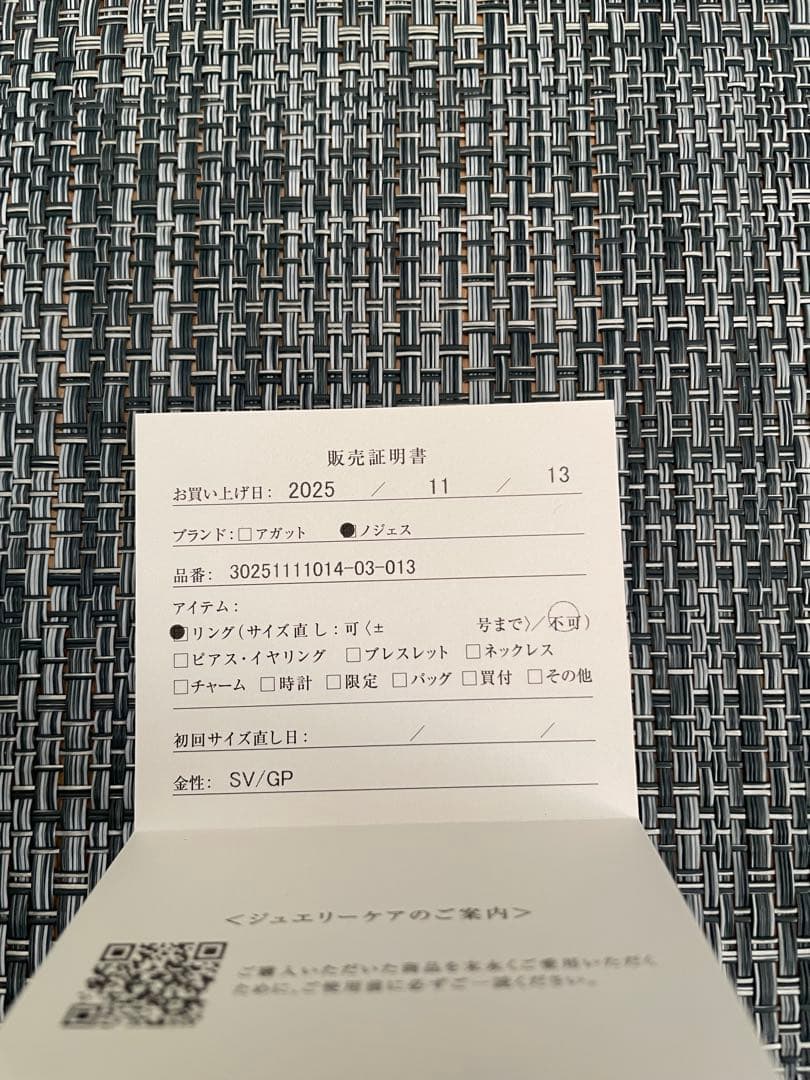 販売証明書
お買い上げ日: 2025 / 11 / 13
ブランド: □アガット ●ノジェス
品番: 30251111014-03-013
アイテム:
●リング(サイズ直し:可〈± 号まで〉/不可)
□ピアス・イヤリング □ブレスレット □ネックレス
□チャーム □時計 □限定 □バッグ □買付 □その他
初回サイズ直し日: / /
金性: SV/GP
<ジュエリーケアのご案内>
ご購入いただいた商品を末永くご愛用いただく
ために、ご使用前に必ずご一読ください。